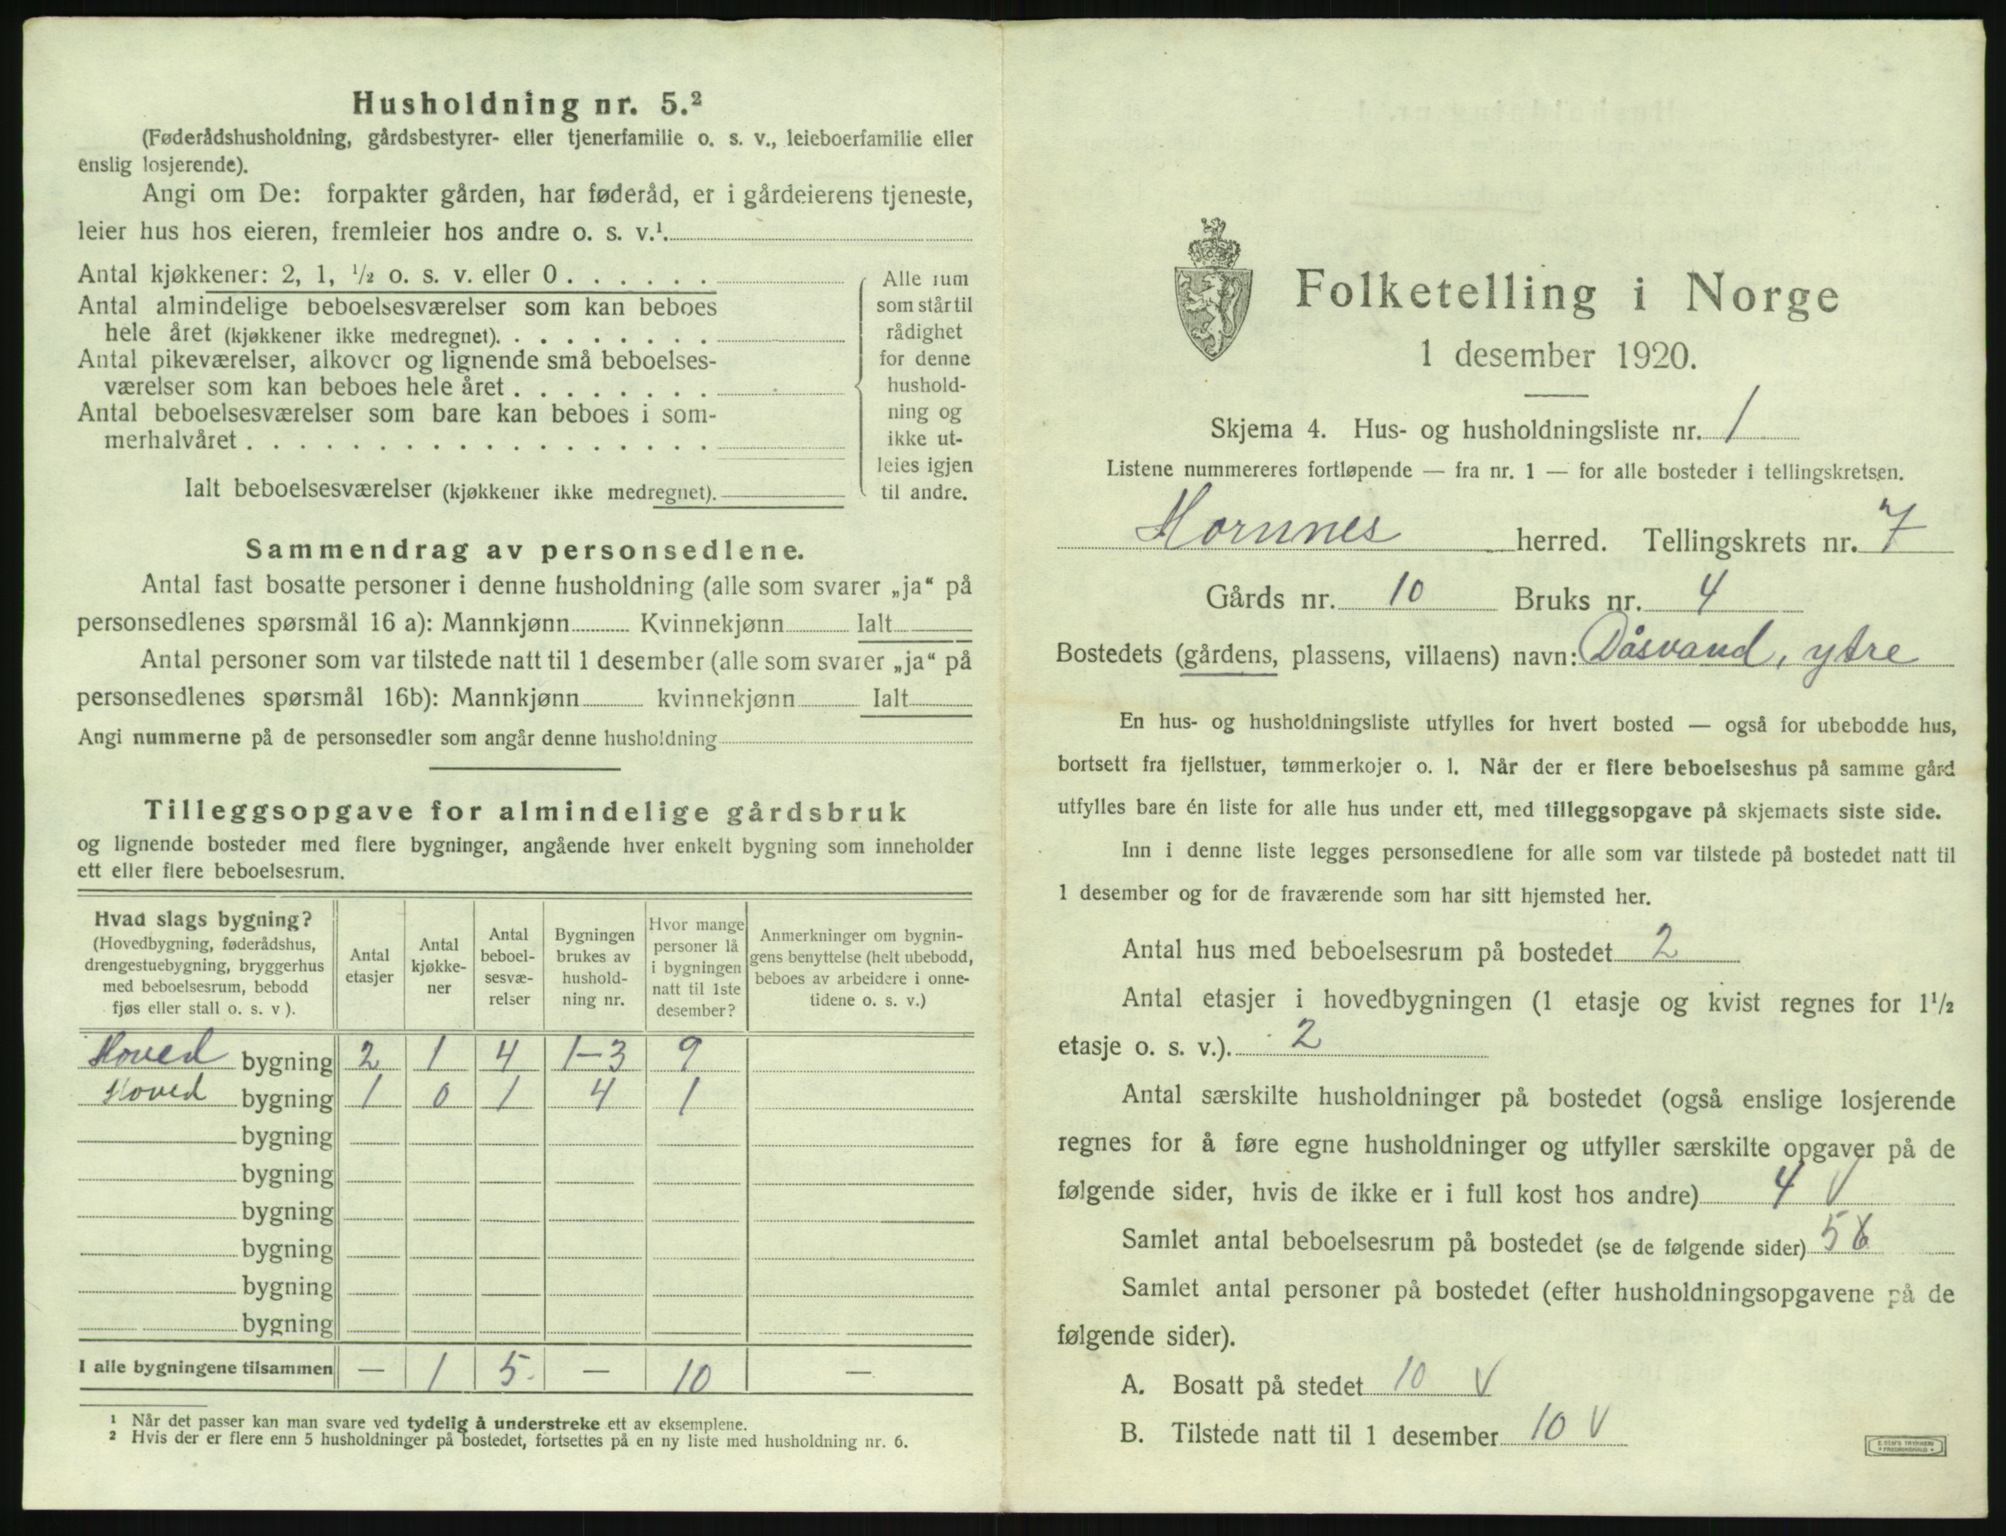 Husholdning nr. 5.²
(Føderådshusholdning, gårdsbestyrer- eller tjenerfamilie o. s. v., leieboerfamilie eller
enslig losjerende).
Angi om De: forpakter gården, har føderåd, er i gårdeierens tjeneste,
leier hus hos eieren, fremleier hos andre o. s. v.¹.
Antal kjøkkener: 2, 1, ½ o. s. v. eller 0 . . . . . .
Antal almindelige beboelsesværelser som kan beboes
hele året (kjøkkener ikke medregnet). . . . . . . . .
Antal pikeværelser, alkover og lignende små beboelses-
værelser som kan beboes hele året . . . . . . . .
Antal beboelsesværelser som bare kan beboes i som-
merhalvåret . . . . . . . . . . . . . . . . .
Ialt beboelsesværelser (kjøkkener ikke medregnet).
Alle rum
som står til
rådighet
for denne
hushold-
ning og
ikke ut-
leies igjen
til andre.
Sammendrag av personsedlene.
Antal fast bosatte personer i denne husholdning (alle som svarer „ja“ på
personsedlenes spørsmål 16 a): Mannkjønn Kvinnekjønn Ialt
Antal personer som var tilstede natt til 1 desember (alle som svarer „ja“ på
personsedlenes spørsmål 16b): Mannkjønn kvinnekjønn Ialt
Angi nummerne på de personsedler som angår denne husholdning
Tilleggsopgave for almindelige gårdsbruk
og lignende bosteder med flere bygninger, angående hver enkelt bygning som inneholder
ett eller flere beboelsesrum.
Hvad slags bygning?
(Hovedbygning, føderådshus,
drengestuebygning, bryggerhus
med beboelsesrum, bebodd
fjøs eller stall o. s. v ).
Antal
etasjer
Antal
kjøkke-
ner
Antal
beboel-
sesvæ-
relser
Bygningen
brukes av
hushold-
ning nr.
Hvor mange
personer lå
i bygningen
natt til 1ste
desember?
Anmerkninger om bygnin-
gens benyttelse (helt ubebodd,
beboes av arbeidere i onne-
tidene o. s. v.)
Hoved bygning 2 1 4 1-3 9
Hoved bygning 1 0 1 4 1
bygning
bygning
bygning
bygning
bygning
bygning
I alle bygningene tilsammen — 1 5 — 10 —
¹ Når det passer kan man svare ved tydelig å understreke ett av eksemplene.
² Hvis der er flere enn 5 husholdninger på bostedet, fortsettes på en ny liste med husholdning nr. 6.
Folketelling i Norge
1 desember 1920.
Skjema 4. Hus- og husholdningsliste nr. 1
Listene nummereres fortløpende — fra nr. 1 — for alle bosteder i tellingskretsen.
Hornnes herred. Tellingskrets nr. 7
Gårds nr. 10 Bruks nr. 4
Bostedets (gårdens, plassens, villaens) navn: Dåsvand, ytre
En hus- og husholdningsliste utfylles for hvert bosted — også for ubebodde hus,
bortsett fra fjellstuer, tømmerkojer o. l. Når der er flere beboelseshus på samme gård
utfylles bare én liste for alle hus under ett, med tilleggsopgave på skjemaets siste side.
Inn i denne liste legges personsedlene for alle som var tilstede på bostedet natt til
1 desember og for de fraværende som har sitt hjemsted her.
Antal hus med beboelsesrum på bostedet 2
Antal etasjer i hovedbygningen (1 etasje og kvist regnes for 1½
etasje o. s. v.). 2
Antal særskilte husholdninger på bostedet (også enslige losjerende
regnes for å føre egne husholdninger og utfyller særskilte opgaver på de
følgende sider, hvis de ikke er i full kost hos andre) 4 V
Samlet antal beboelsesrum på bostedet (se de følgende sider) 5 6
Samlet antal personer på bostedet (efter husholdningsopgavene på de
følgende sider).
A. Bosatt på stedet 10 V
B. Tilstede natt til 1 desember 10 V